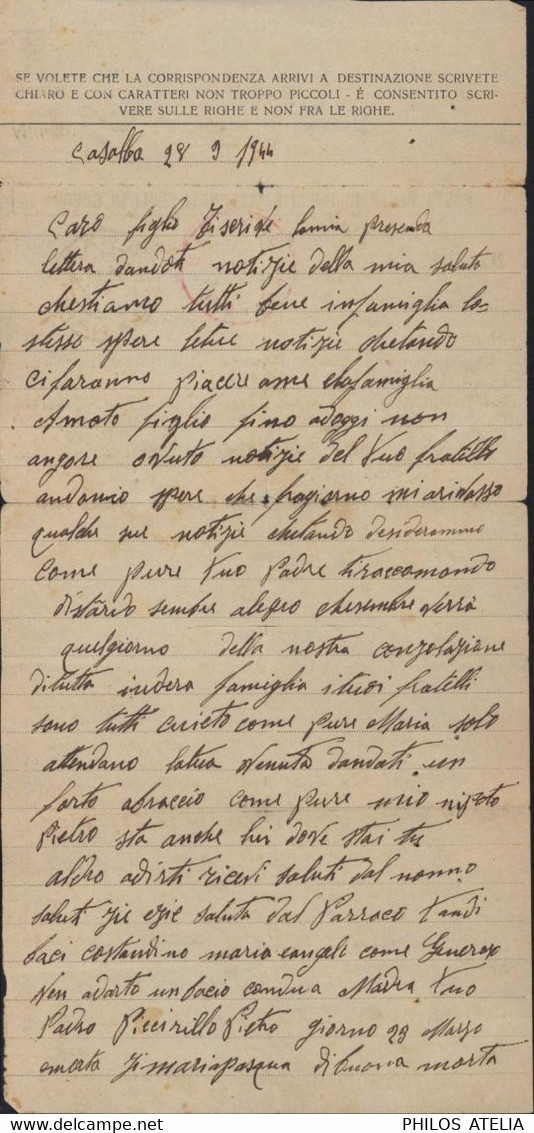 SE VOLETE CHE LA CORRISPONDENZA ARRIVI A DESTINAZIONE SCRIVETE
CHIARO E CON CARATTERI NON TROPPO PICCOLI - É CONSENTITO SCRI-
VERE SULLE RIGHE E NON FRA LE RIGHE.
Casalba 28 9 1944
Caro figlio Tiscrive lamia presenda
lettera dandoti notizie della mia saluta
chestiamo tutti bene infamiglia lo-
stesso spere notizie chetando
cifaranno piacere ame chafamiglia
Amato figlio fino adoggi non
angore avuto notizie del tuo fratello
andonio spere che fragiorno
qualche notizie chetando desideramme
come pure tuo Padre tiraccomando
distàrio sempre alegro chesembre verrà
quelgiorno della nostra conzolazione
ditutta indera famiglia ituoi fratelli
sono tutti come pure Maria solo
attendano latua venuta dandati un
forto abraccio come pure mio nipoto
Pietro sta anche lui dove stai tu
aldro adirti ricevi saluti dal nonno
saluti zie ezie saluta dal Parraco tandi
baci costandino maria come
ven adarto unbacio condua Madra tuo
Padro Piccirillo Pietro giorno 29 Marzo
morta zimariapasqua dibuona morta
PHILOS ATELIA